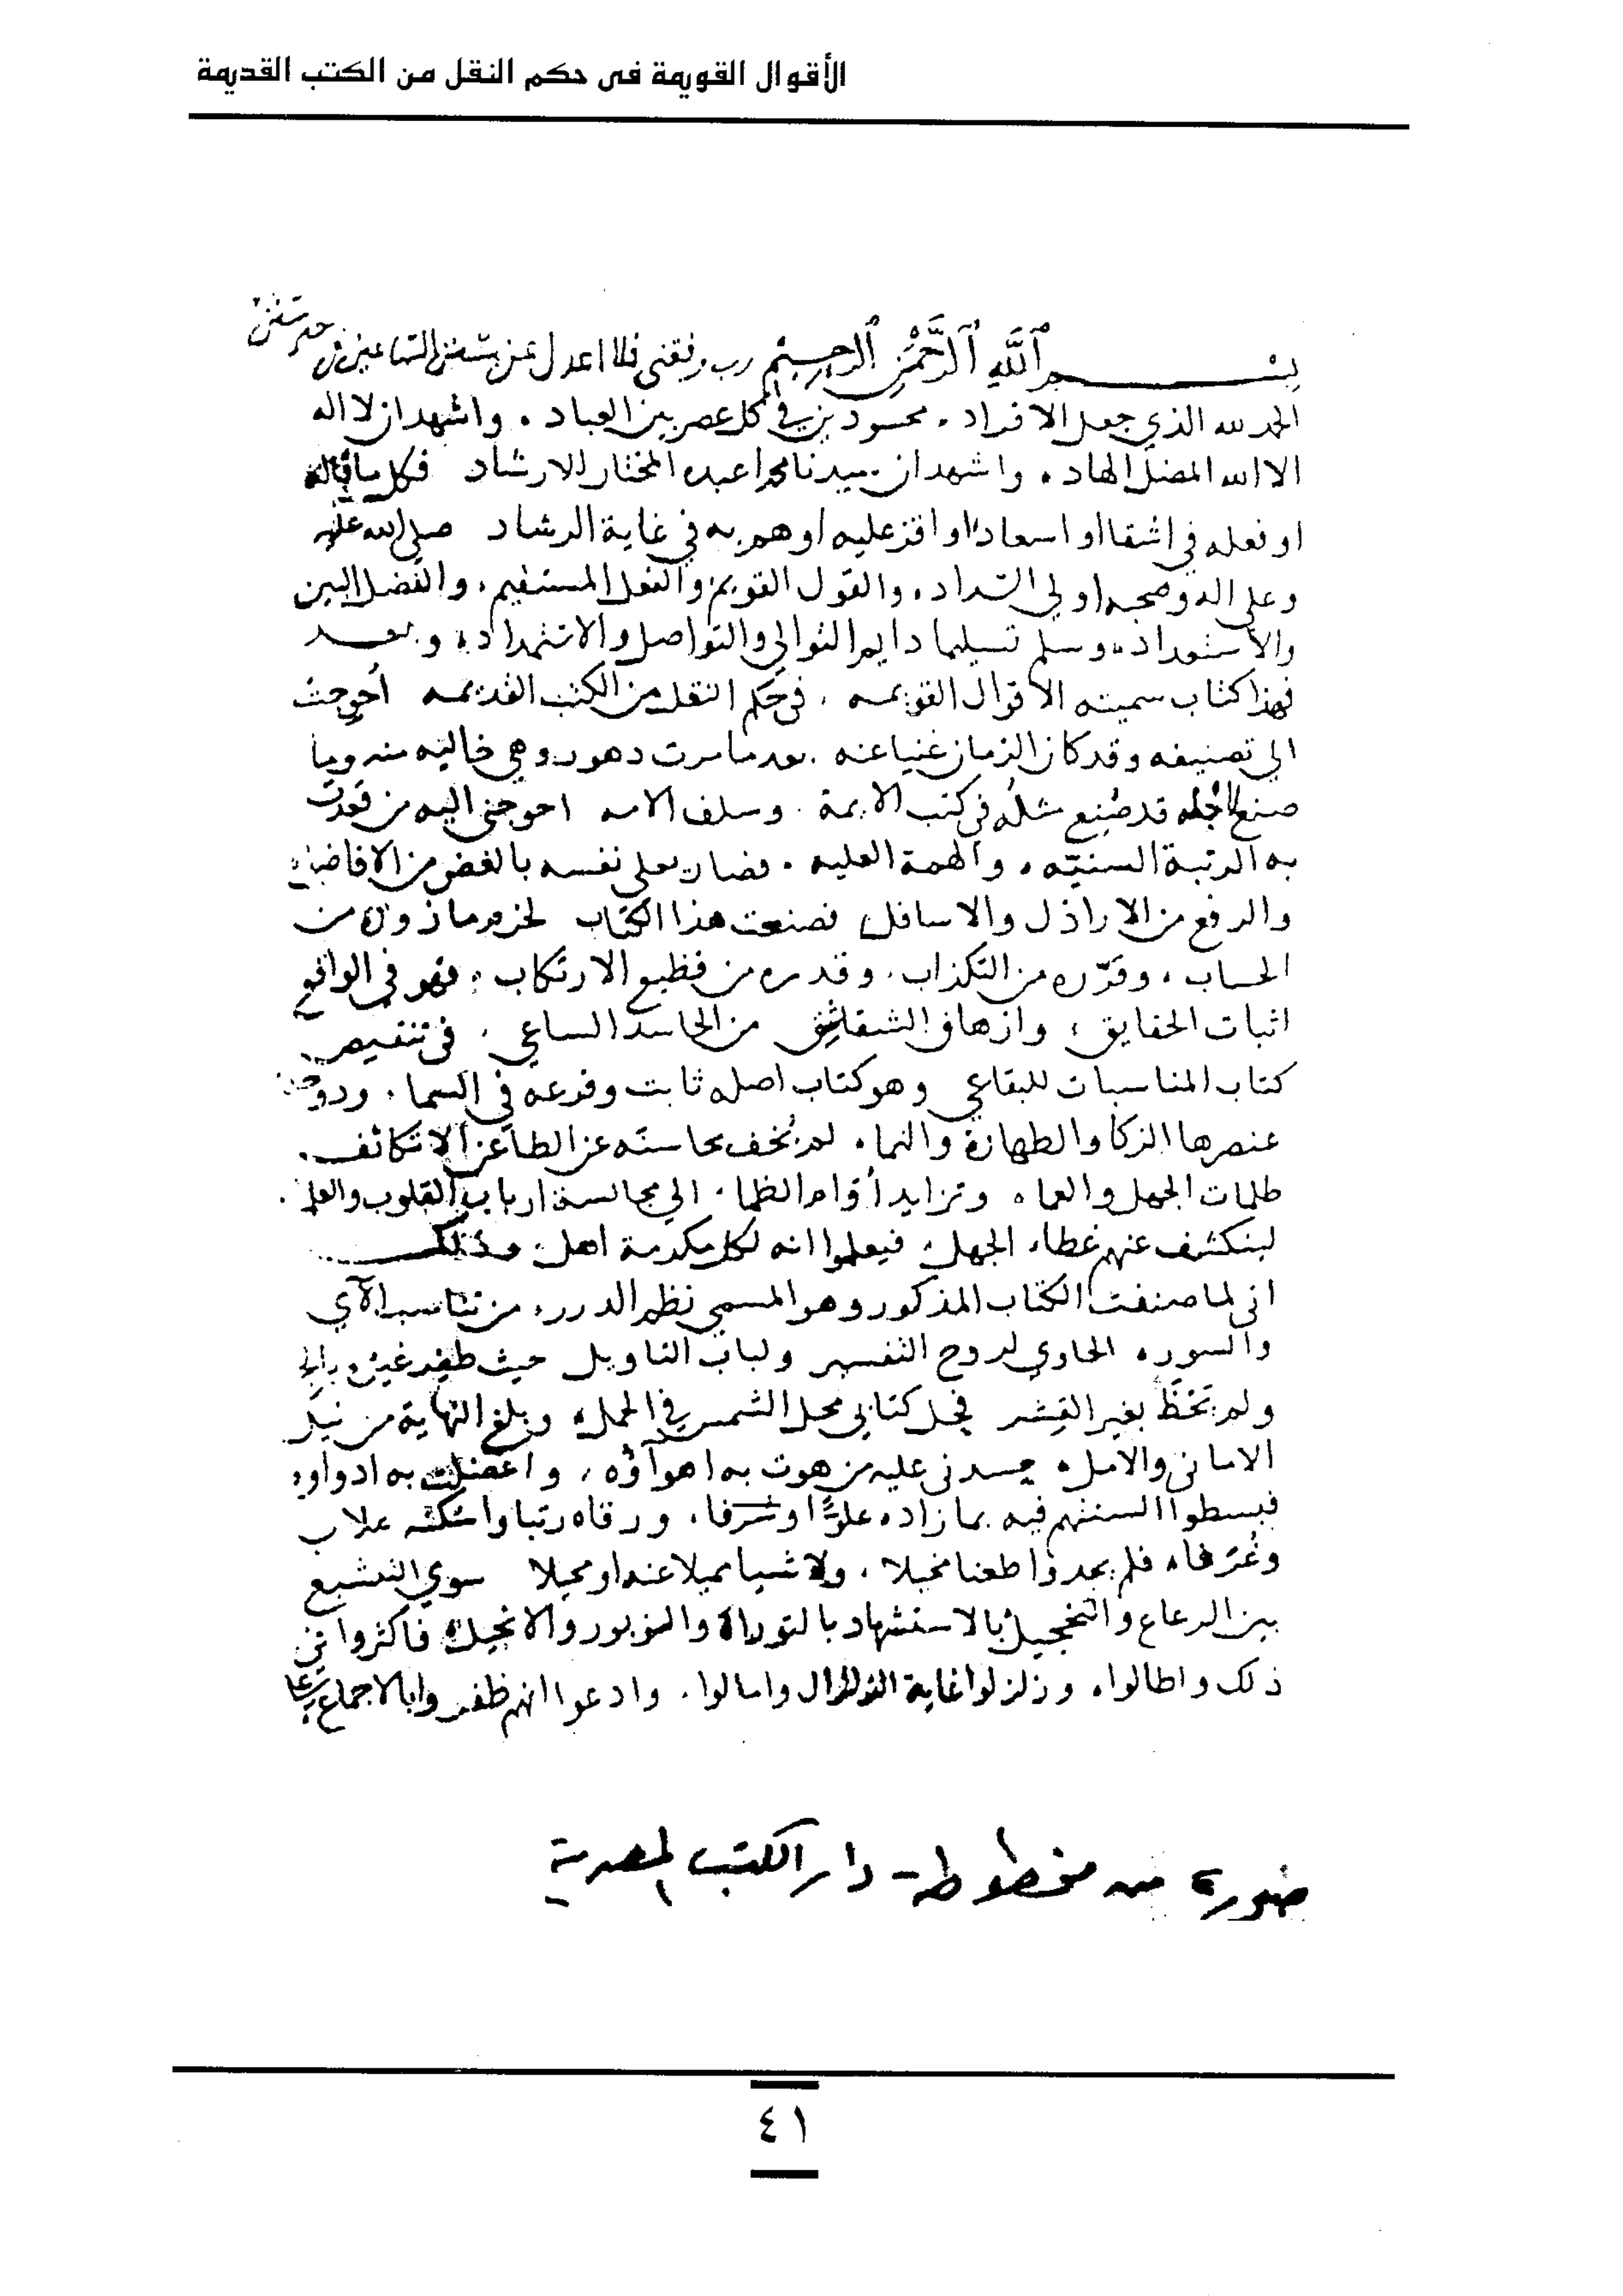 الأقوال القويمة فى حكم النقل من الكتب القديمة
بسم الله الرحمن الرحيم رب وفقني فلا اعدل عن سنن الساعين في خير سنن
الحمد لله الذي جعل الافراد . محسودين في كل عصر بين العباد . واشهد ان لا اله
الا الله المضل الهاد . واشهد ان سيدنا محمدا عبده المختار للارشاد فكل ما قاله
او فعله في اشقا او اسعاد او اقر عليه او هم به في غاية الرشاد صلى الله عليه
وعلى اله وصحبه اولي السداد . والقول القويم والفعل المستقيم . والفضل البين
والاستعداد . وسلم تسليما دايم التوالي والتواصل والاستمداد . وبعد
فهذا كتاب سميته الاقوال القويمه . في حكم النقل من الكتب القديمه أحوجت
الي تصنيفه وقد كان الزمان غنيا عنه . بعد ما مرت دهور وهي خاليه منه وما
صنع لاجله قد صُنِع مثلُه في كتب الايمة . وسلف الامه احوجني اليه من قعدت
به الرتبة السنيّه . والهمة العليه . فصار يعلي نفسه بالغض من الافاضل
والرفع من الاراذل والاسافل فصنعت هذا الكتاب لخرم ما زوره من
الحساب . وقرّره من التكذاب . وقدره من فظيع الارتكاب . فهو في الواقع
اثبات الحقايق . وازهاق الشقاشق من الحاسد الساعي . في تنقيص
كتاب المناسبات للبقاعي وهو كتاب اصله ثابت وفرعه في السما .
عنصرها الزكا والطهارة والنما . لم تخف محاسنه عن الطاعن الا تكاثف .
ظلمات الجهل والعما . وتزايد أوام الظما . الي مجالسة ارباب القلوب والعلم .
لينكشف عنهم غطاء الجهل . فيعلموا انه لكل مكرمة اهل . وذلك
اني لما صنفت الكتاب المذكور وهو المسمي نظم الدرر . من تناسب الآي
والسور . الحاوي لروح التفسير ولباب التاويل حيث ظفر غيره
ولم تَحْظَ بغير القشر فحل كتابي محل الشمس في الحمل . وبلغ النهاية من نيل
الاماني والامل . حسدني عليه من هوت به اهوآؤه . واعضلت به ادواؤه
فبسطوا السنتهم فيه بما زاده علوًّا وشرفا . ورقاه رتبا واسكنه علاب
وغُرَفا . فلم يجدوا طعنا مخيلا . ولا شيا مميلا عنه او محيلا سوي التشنيع
بين الرعاع والتخجيل بالاستشهاد بالتوراة والزبور والانجيل فاكثروا في
ذلك واطالوا . وزلزلوا غاية الزلزال وامالوا . وادعوا انهم ظفروا بالاجماع
صورة من مخطوط - دار الكتب المصرية
٤١